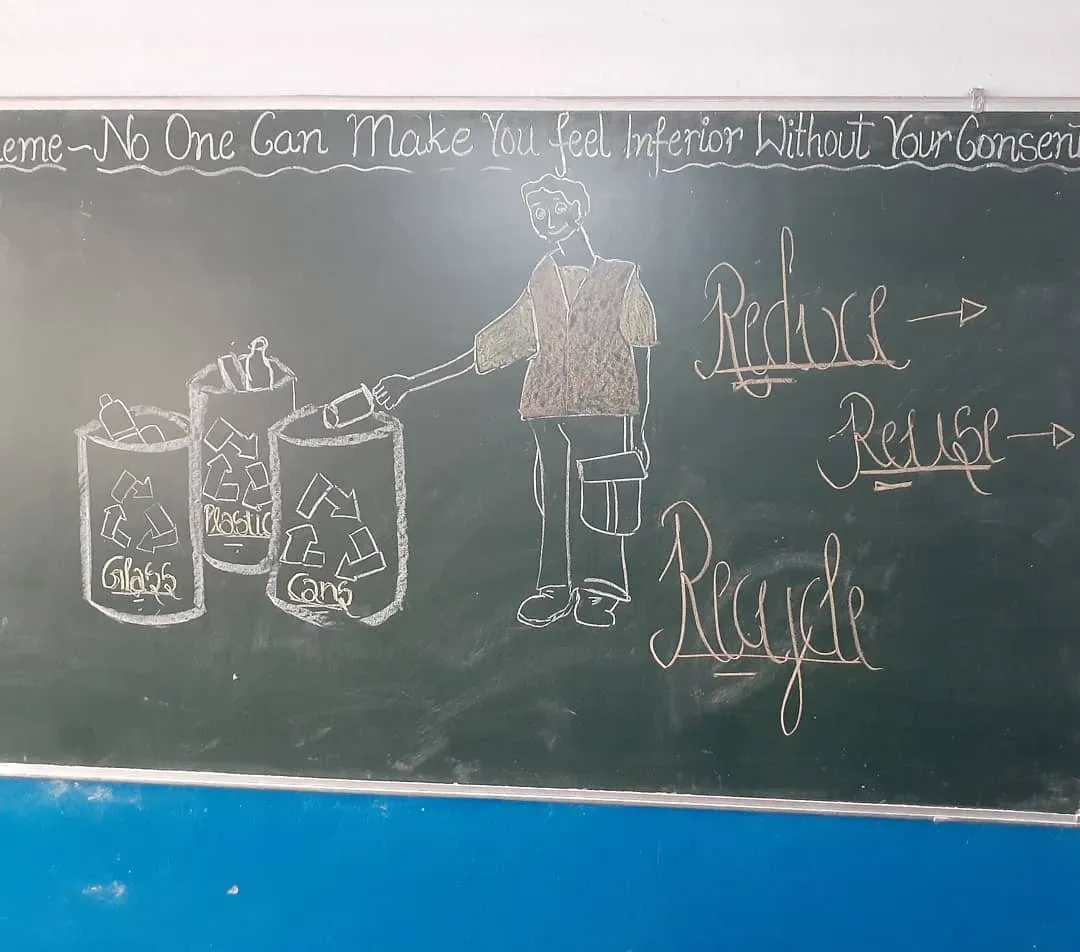 eme~No One Can Make You feel Inferior Without Your Consent
Reduce →
Reuse →
Recycle
Plastic
Glass
Cans